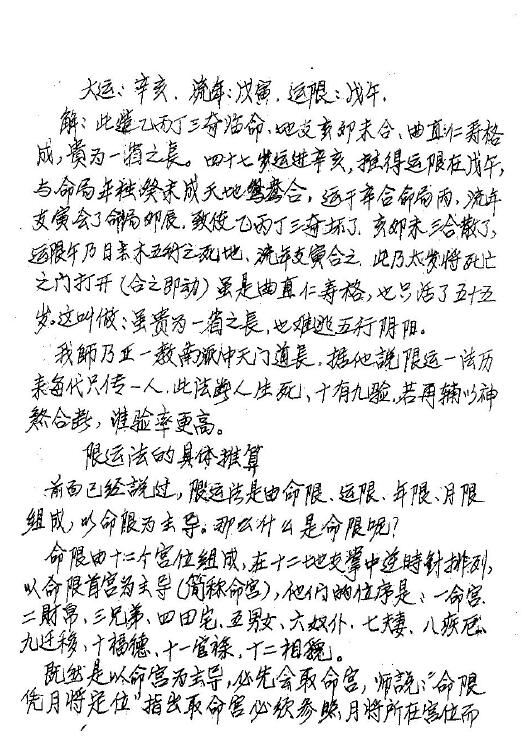 大运：辛亥．流年：戊寅．运限：戊午．
解：此造乙丙丁三奇临命．地支亥卯未合．曲直仁寿格
成，贵为一省之長。四十七岁运进辛亥，推得运限在戊午，
与命局年柱癸未成天地鸳鸯合，运干辛合命局丙，流年
支寅会了命局卯辰．致使乙丙丁三奇坏了．亥卯未三合散了，
运限午乃日主木五行之死地．流年支寅合之．此乃太岁将死亡
之门打开（合之即动）虽是曲直仁寿格，也只活了五十五
岁。这叫做：虽贵为一省之長，也难逃五行阴阳。
我師乃正一教南派冲天门道長，据他説限运一法历
来每代只传一人．此法断人生死、十有九验．若再辅以神
煞合断，准验率更高。
限运法的具体推算
前面已经説过，限运法是由命限．运限．年限．月限
组成，以命限为主导。那么什么是命限呢？
命限由十二个宫位组成，在十二地支掌中逆時針排列，
以命限首宫为主导（简称命宫），他们的位序是：一命宫．
二財帛．三兄弟．四田宅．五男女．六奴仆．七夫妻．八疾厄．
九迁移．十福德．十一官禄．十二相貌。
既然是以命宫为主导，必先会取命宫，师説：“命限
凭月将定位”指出取命宫必须参照月将所在宫位而